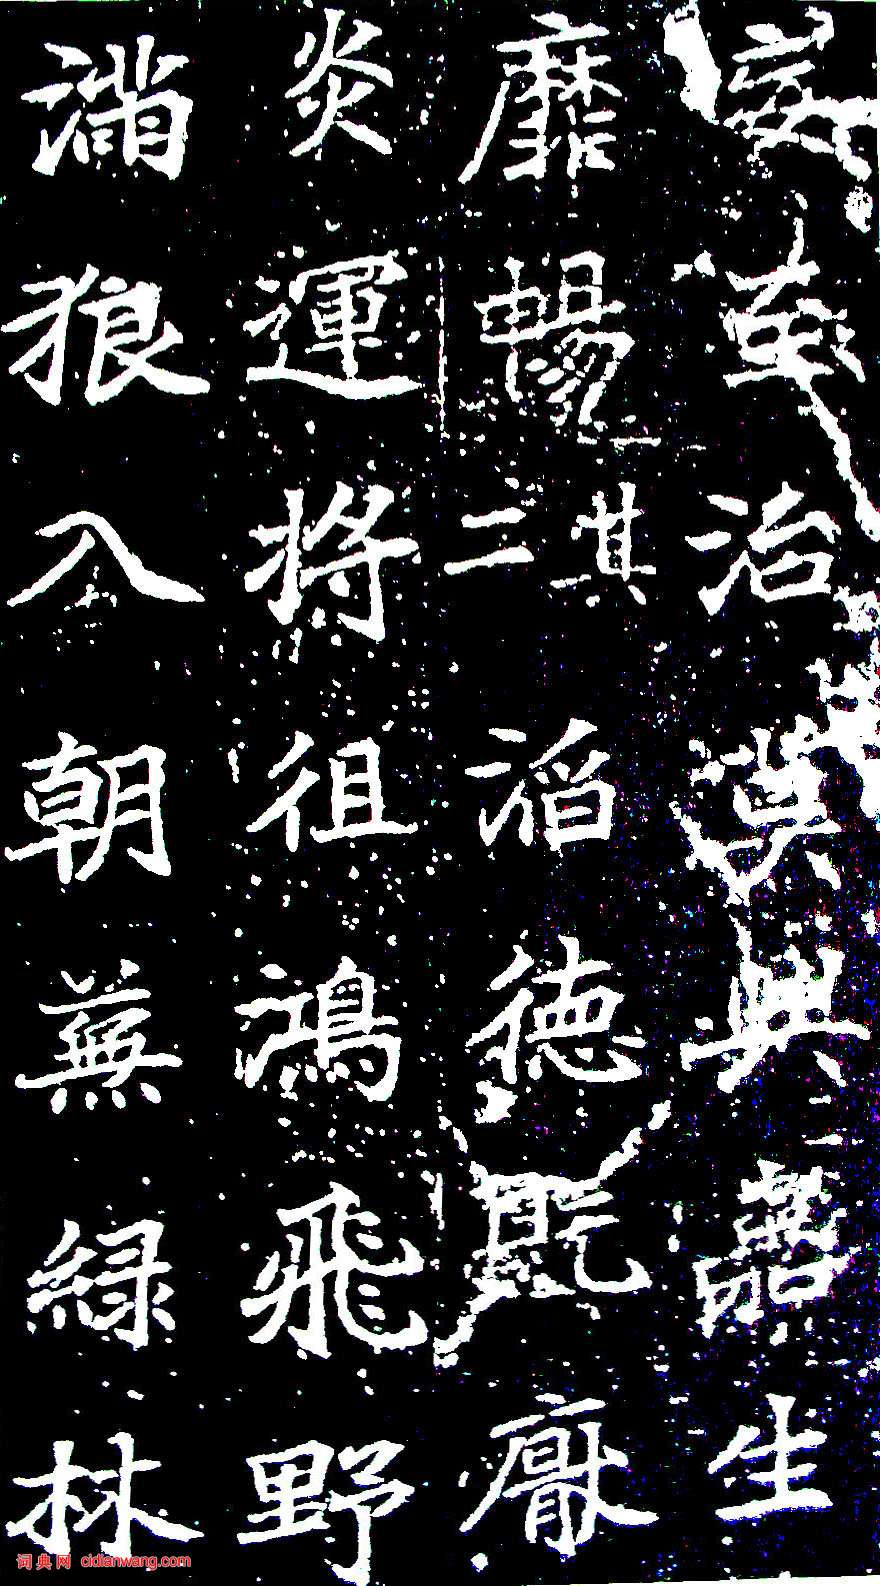 治漢典生
靡暢其二滔德既
炎運將徂鴻飛野
滿狼入朝蕪綠林
词典网 cidianwang.com